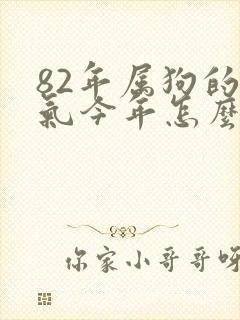 82年属狗的
氣今年怎麼
你家小哥哥呀